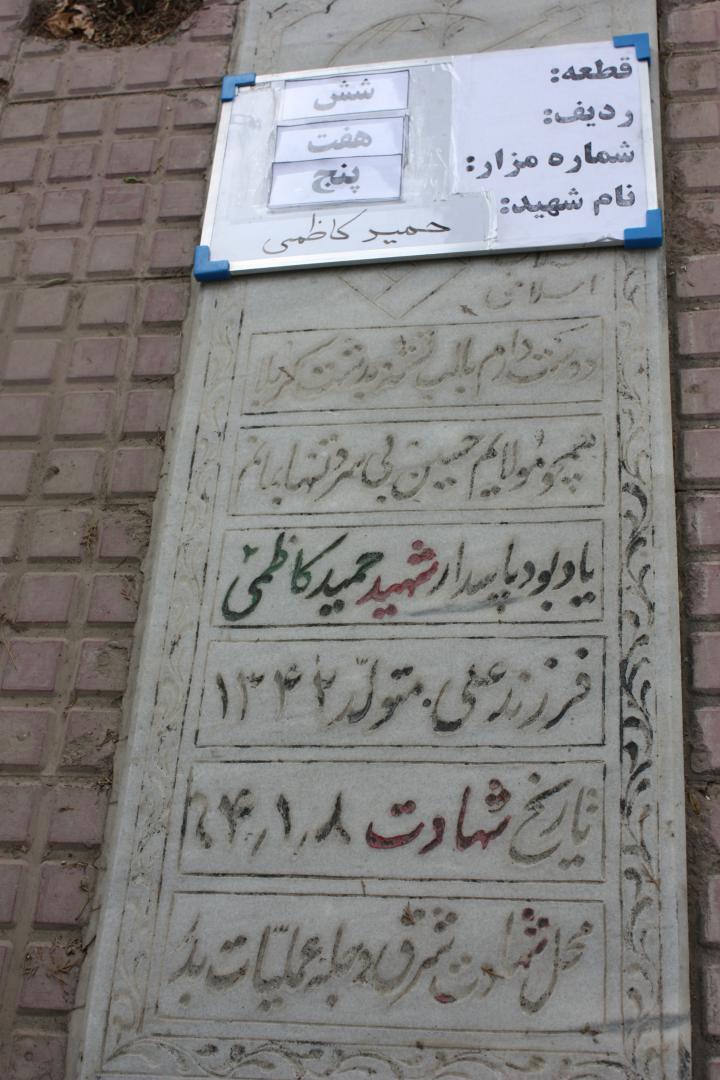 قطعه: شش
ردیف: هفت
شماره مزار: پنج
نام شهید: حمید کاظمی
اسلامی
دوست دارم بالب تشنه بدشت کربلا
همچو مولایم حسین بی سر و تنها بمانم
یادبود پاسدار شهید حمید کاظمی
فرزند علی. متولد ۱۳۴۲
تاریخ شهادت ۶۴٫۱٫۸
محل شهادت شرق دجله عملیات بدر